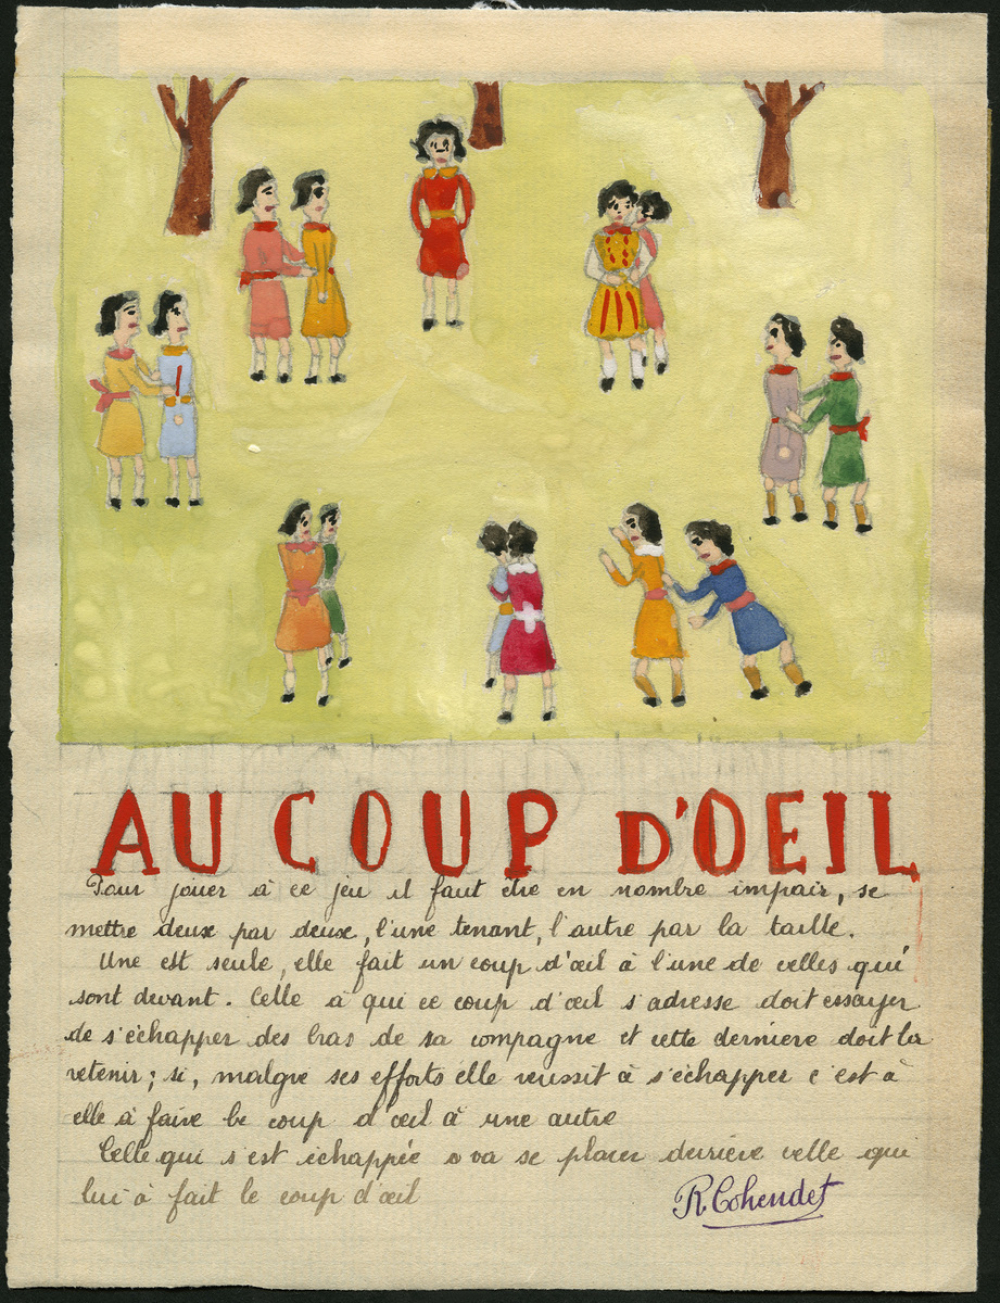 AU COUP D'OEIL
Pour jouer à ce jeu il faut être en nombre impair, se
mettre deux par deux, l'une tenant, l'autre par la taille.
Une est seule, elle fait un coup d'œil à l'une de celles qui
sont devant. Celle à qui ce coup d'œil s'adresse doit essayer
de s'échapper des bras de sa compagne et cette dernière doit la
retenir; si, malgré ses efforts elle réussit à s'échapper c'est à
elle à faire le coup d'œil à une autre
Celle qui s'est échappée va se placer derrière celle qui
lui à fait le coup d'œil
R. Cohendet